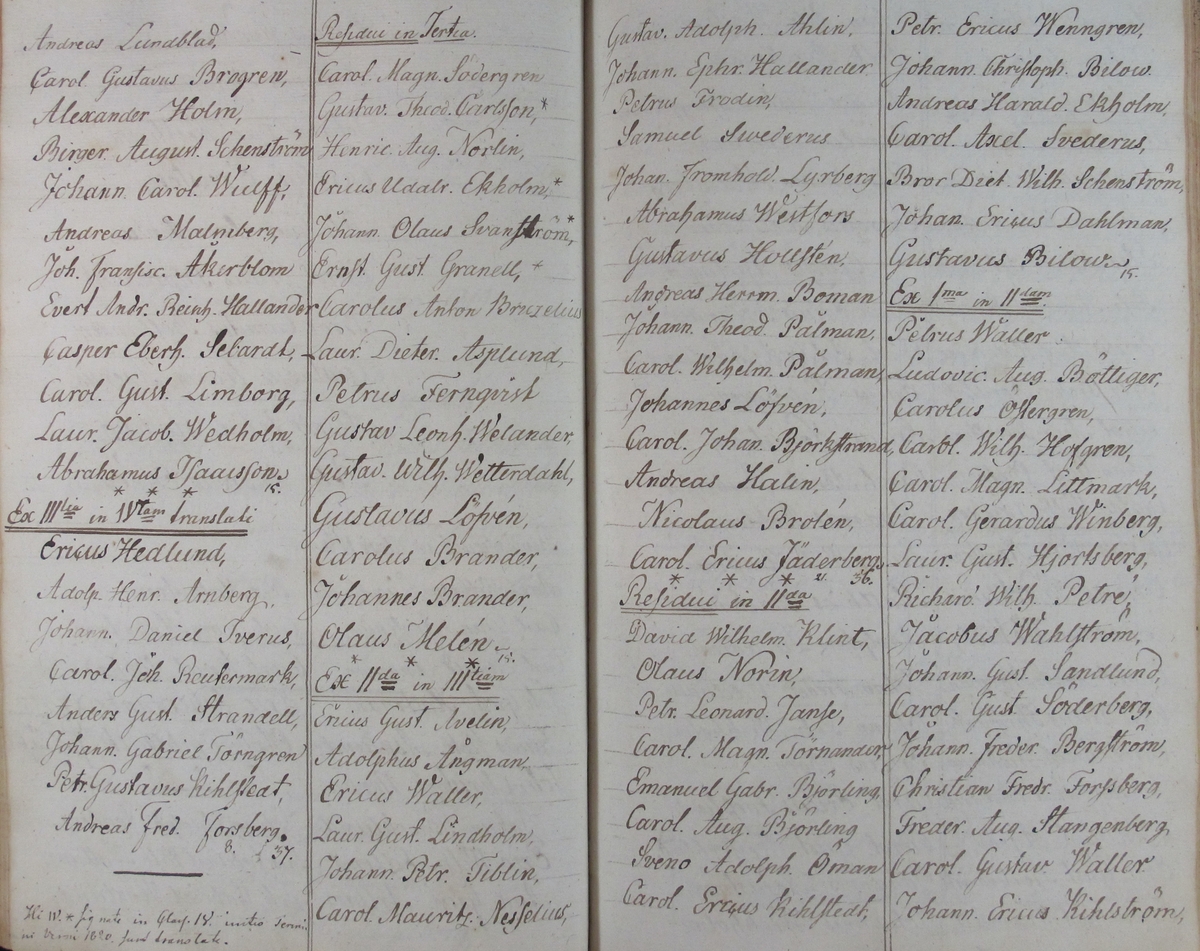 Andreas Lundblad,
Carol Gustavus Brogren,
Alexander Holm,
Birger. August. Schenström
Johann. Carol. Wulff,
Andreas Malmberg,
Joh. Fransisc. Åkerblom
Evert Andr. Reinh. Hallander
Casper Eberh. Sebardt,
Carol. Gust. Limborg,
Laur. Jacob. Wedholm,
Abrahamus Isaacsson,
15.
* * *
Ex III tia in IV tam translati
Ericus Hedlund,
Adolp. Henr. Arnberg,
Johann. Daniel Tverus,
Carol. Joh. Reutermark,
Anders Gust. Strandell,
Johann. Gabriel Törngren
Petr. Gustavus Kihlstedt,
Andreas Fred. Forsberg.
8. 37.
Hi W. * signate in Class. IV. initio
1820. sunt translate.
Residui in Tertia.
Carol. Magn. Södergren
Gustav. Theod. Carlsson, *
Henric. Aug. Norlin,
Ericus Udalr. Ekholm, *
Johann. Olaus Svanström, *
Ernst. Gust. Granell, +
Carolus Anton Bruzelius
Laur. Dieter. Asplund,
Petrus Fernqvist
Gustav Leonh. Welander,
Gustav. Wilh. Wetterdahl,
Gustavus Löfvén,
Carolus Brander,
Johannes Brander,
Olaus Melén
15.
* * *
Ex II da in III tiam
Ericus Gust. Avelin,
Adolphus Ångman
Ericus Waller,
Laur. Gust. Lindholm,
Johann. Petr. Tiblin,
Carol. Mauritz. Nesselius,
Gustav. Adolph. Ahlin,
Johann. Ephr. Hallander
Petrus Frodin,
Samuel Swederus
Johan. Fromhold. Lyrberg
Abrahamus Westfors
Gustavus Hollstén,
Andreas Herrm. Boman
Johann. Theod. Pålman,
Carol. Wilhelm. Pålman,
Johannes Löfven,
Carol. Johan. Björkstrand,
Andreas Halin,
Nicolaus Brolén,
Carol. Ericus Jäderberg,
21. 36.
* * *
Residui in II da
David Wilhelm. Klint,
Olaus Norin,
Petr. Leonard. Janse,
Carol. Magn. Törnander,
Emanuel Gabr. Björling,
Carol. Aug. Björling
Sveno Adolph. Öman
Carol. Ericus Kihlstedt,
Petr. Ericus Wenngren,
Johann. Christoph. Bilow
Andreas Harald. Ekholm,
Carol. Axel Svederus,
Bror Diet. Wilh. Schenström,
Johan. Ericus Dahlman,
Gustavus Bilow
15.
Ex I ma in II dam
Petrus Waller.
Ludovic. Aug. Böttiger,
Carolus Östergren,
Carol. Wilh. Hofgren,
Carol. Magn. Littmark,
Carol. Gerardus Winberg,
Laur. Gust. Hjortsberg,
Richard Wilh. Petré,
Jacobus Wahlström,
Johann. Gust. Sandlund,
Carol. Gust Söderberg,
Johann. Freder. Bergström,
Christian Fredr. Forssberg,
Freder. Aug. Stangenberg,
Carol. Gustav. Waller
Johann. Ericus Kihlström,